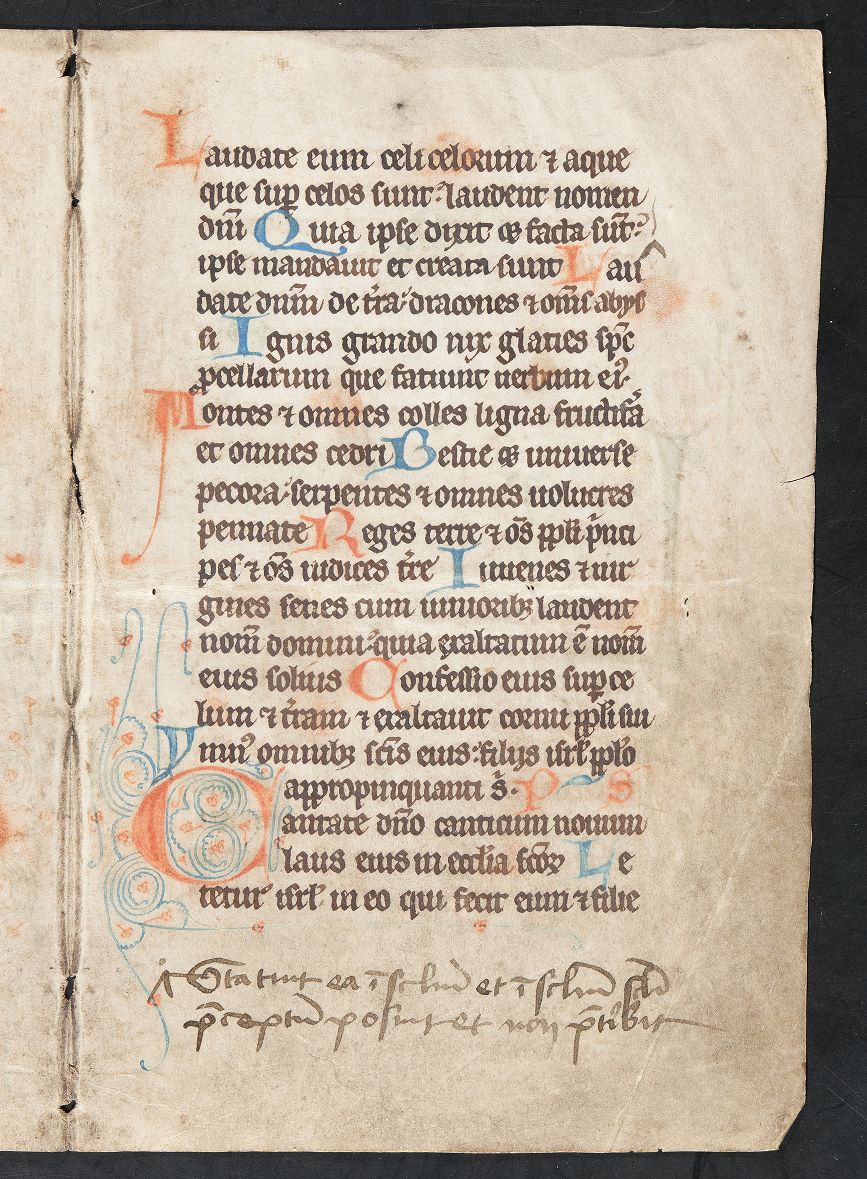 Laudate eum celi celorum ⁊ aque
que sup̱ celos sunt: laudent nomen
dn̄i Quia ipse dixit ⁊ facta sūt:
ipse mandauit et creata sunt Lau
date dn̄m de t̄ra: dracones ⁊ om̄s abys
si Ignis grando nix glacies sp̄c
ꝓcellarum que faciunt uerbum eiꝰ.
Montes ⁊ omnes colles ligna fructif̄a
et omnes cedri Bestie ⁊ uniuerse
pecora: serpentes ⁊ omnes uolucres
pennate Reges terre ⁊ om̄s ppl̄i p̄nci
pes ⁊ om̄s iudices t̄re Iuuenes ⁊ uir
gines senes cum iuniorib; laudent
nom̄ domini: quia exaltatum ē nom̄
eius solius Confessio eius sup̱ ce
lum ⁊ t̄ram ⁊ exaltauit cornu ppl̄i sui
Ymnꝰ omnib; sc̄is eius: filijs isrl̄ ppl̄o
appropinquanti s̄. Ps
Cantate dn̄o canticum nouum
laus eius in eccl̄ia sc̄oꝝ Le
tetur isrl̄ in eo qui fecit eum ⁊ filie
Statuit ea ī sclm̄ et ī sclm̄ scl̄i
p̄ceptū posuit et non p̄t̄ibit